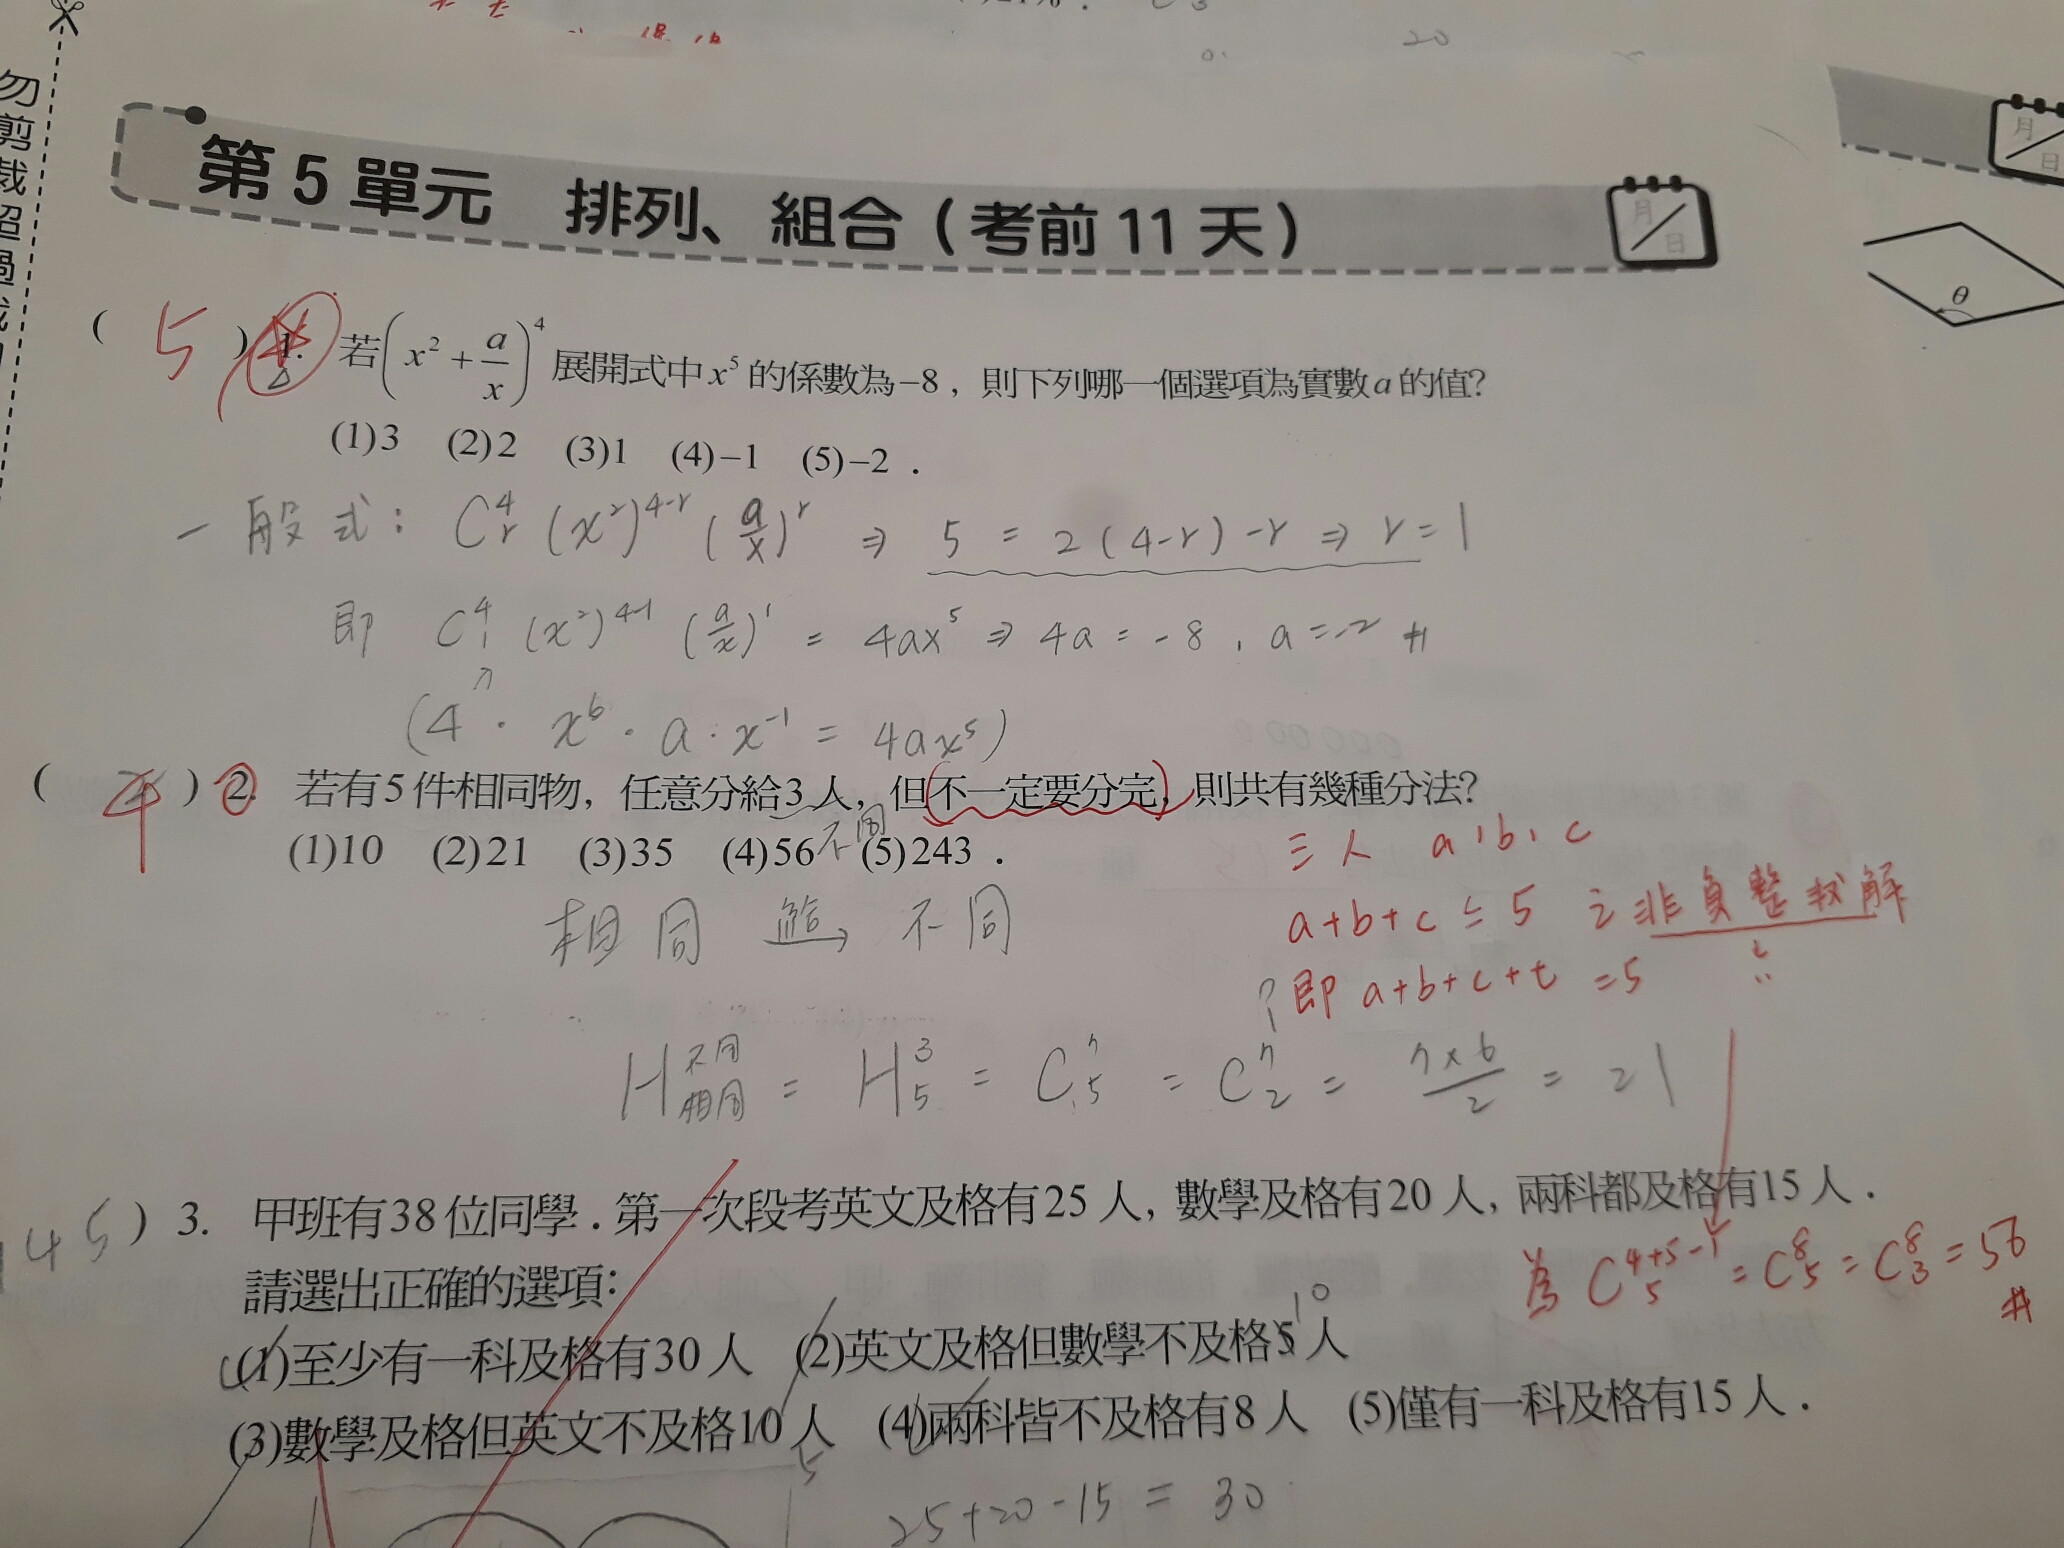 勿剪裁
20
第5單元 排列、組合(考前11天)
月/日
月/日
θ
( 5 ) 1. 若(x²+a/x)⁴展開式中x⁵的係數為−8,則下列哪一個選項為實數a的值?
(1)3 (2)2 (3)1 (4)−1 (5)−2.
一般式: C⁴ᵣ (x²)⁴⁻ʳ (a/x)ʳ ⇒ 5 = 2(4-r)-r ⇒ r=1
即 C⁴₁ (x²)⁴⁻¹ (a/x)¹ = 4ax⁵ ⇒ 4a = -8, a=-2 #
(4 · x⁶ · a · x⁻¹ = 4ax⁵)
( 4 ) 2. 若有5件相同物,任意分給3人,但不一定要分完,則共有幾種分法?
不同
(1)10 (2)21 (3)35 (4)56 (5)243.
三人 a,b,c
相同 給→ 不同
a+b+c ≤ 5 之非負整數解
? 即 a+b+c+t =5
H不同相同 = H³₅ = C⁷₅ = C⁷₂ = 7×6/2 = 21
45 ) 3. 甲班有38位同學.第一次段考英文及格有25人,數學及格有20人,兩科都及格有15人.
為 C⁴⁺⁵⁻¹₅ = C⁸₅ = C⁸₃ = 56 #
請選出正確的選項:
10
(1)至少有一科及格有30人 (2)英文及格但數學不及格5人
(3)數學及格但英文不及格10人 (4)兩科皆不及格有8人 (5)僅有一科及格有15人.
5
25+20-15 = 30